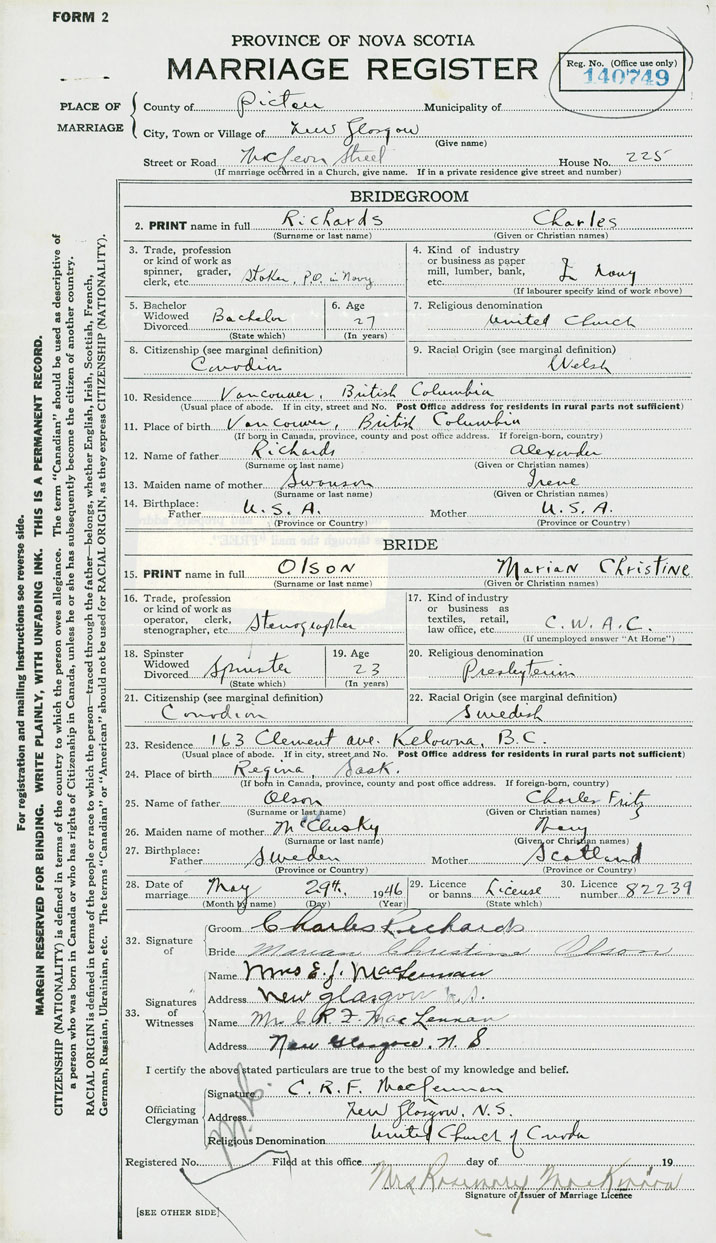 FORM 2
PROVINCE OF NOVA SCOTIA
MARRIAGE REGISTER
Reg. No. (Office use only)
140749
PLACE OF MARRIAGE
County of Pictou Municipality of
City, Town or Village of New Glasgow
(Give name)
Street or Road McLeon Street House No. 225
(If marriage occurred in a Church, give name. If in a private residence give street and number)
BRIDEGROOM
2. PRINT name in full Richards Charles
(Surname or last name) (Given or Christian names)
3. Trade, profession or kind of work as spinner, grader, clerk, etc. Stoker, P.O. in Navy
4. Kind of industry or business as paper mill, lumber, bank, etc. In Navy
(If labourer specify kind of work above)
5. Bachelor Widowed Divorced Bachelor
(State which)
6. Age 27
(In years)
7. Religious denomination United Church
8. Citizenship (see marginal definition) Canadian
9. Racial Origin (see marginal definition) Welsh
10. Residence Vancouver, British Columbia
(Usual place of abode. If in city, street and No. Post Office address for residents in rural parts not sufficient)
11. Place of birth Vancouver, British Columbia
(If born in Canada, province, county and post office address. If foreign-born, country)
12. Name of father Richards Alexander
(Surname or last name) (Given or Christian names)
13. Maiden name of mother Swanson Irene
(Surname or last name) (Given or Christian names)
14. Birthplace: Father U.S.A. Mother U.S.A.
(Province or Country) (Province or Country)
BRIDE
15. PRINT name in full OLSON Marian Christine
(Surname or last name) (Given or Christian names)
16. Trade, profession or kind of work as operator, clerk, stenographer, etc. Stenographer
17. Kind of industry or business as textiles, retail, law office, etc. C.W.A.C.
(If unemployed answer "At Home")
18. Spinster Widowed Divorced Spinster
(State which)
19. Age 23
(In years)
20. Religious denomination Presbyterian
21. Citizenship (see marginal definition) Canadian
22. Racial Origin (see marginal definition) Swedish
23. Residence 163 Clement ave. Kelowna, B.C.
(Usual place of abode. If in city, street and No. Post Office address for residents in rural parts not sufficient)
24. Place of birth Regina, Sask.
(If born in Canada, province, county and post office address. If foreign-born, country)
25. Name of father Olson Charles Fritz
(Surname or last name) (Given or Christian names)
26. Maiden name of mother McClusky Mary
(Surname or last name) (Given or Christian names)
27. Birthplace: Father Sweden Mother Scotland
(Province or Country) (Province or Country)
28. Date of marriage May 29th. 1946
(Month by name) (Day) (Year)
29. Licence or banns License
(State which)
30. Licence number 82239
32. Signature of
Groom Charles Richards
Bride Marian Christine Olson
33. Signatures of Witnesses
Name Mrs E. J. MacLennan
Address New Glasgow N.S.
Name Mrs C R F MacLennan
Address New Glasgow, N S
I certify the above stated particulars are true to the best of my knowledge and belief.
Officiating Clergyman
Signature C. R. F. MacLennan
Address New Glasgow, N.S.
Religious Denomination United Church of Canada
Registered No. Filed at this office day of 19
Mrs Rosemary MacKinnon
Signature of Issuer of Marriage Licence
[SEE OTHER SIDE]
For registration and mailing instructions see reverse side.
MARGIN RESERVED FOR BINDING. WRITE PLAINLY, WITH UNFADING INK. THIS IS A PERMANENT RECORD.
CITIZENSHIP (NATIONALITY) is defined in terms of the country to which the person owes allegiance. The term "Canadian" should be used as descriptive of
a person who was born in Canada or who has rights of Citizenship in Canada, unless he or she has subsequently become the citizen of another country.
RACIAL ORIGIN is defined in terms of the people or race to which the person—traced through the father—belongs, whether English, Irish, Scottish, French,
German, Russian, Ukrainian, etc. The terms "Canadian" or "American" should not be used for RACIAL ORIGIN, as they express CITIZENSHIP (NATIONALITY).